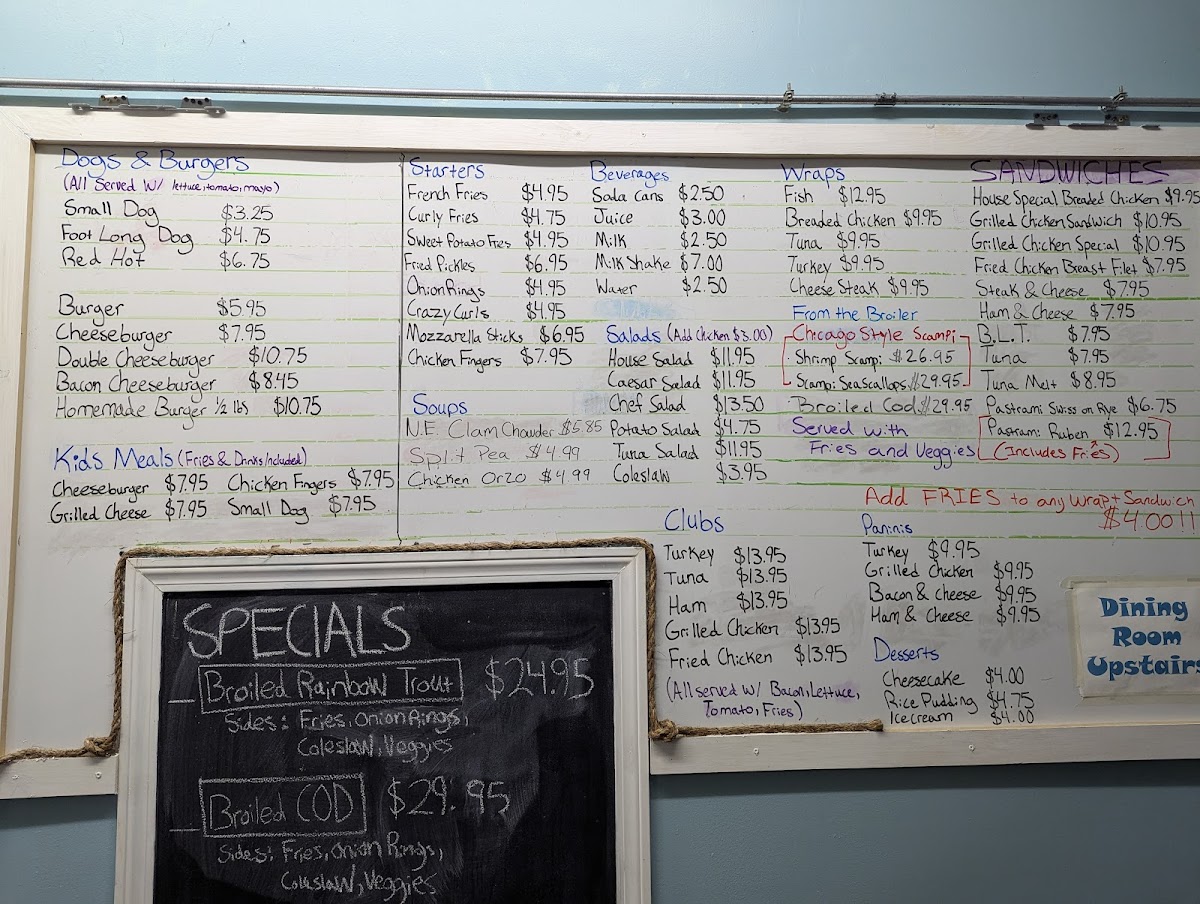 Dogs & Burgers
(All Served W/ lettuce, tomato, mayo)
Small Dog $3.25
Foot Long Dog $4.75
Red Hot $6.75
Burger $5.95
Cheeseburger $7.95
Double Cheeseburger $10.75
Bacon Cheeseburger $8.45
Homemade Burger 1/2 lbs $10.75
Kids Meals (Fries & Drinks Included)
Cheeseburger $7.95 Chicken Fingers $7.95
Grilled Cheese $7.95 Small Dog $7.95
Starters
French Fries $4.95
Curly Fries $4.75
Sweet Potato Fries $4.95
Fried Pickles $6.95
Onion Rings $4.95
Crazy Curls $4.95
Mozzarella Sticks $6.95
Chicken Fingers $7.95
Soups
N.E. Clam Chowder $5.85
Split Pea $4.99
Chicken Orzo $4.99
Beverages
Soda Cans $2.50
Juice $3.00
Milk $2.50
Milk Shake $7.00
Water $2.50
Salads (Add Chicken $3.00)
House Salad $11.95
Caesar Salad $11.95
Chef Salad $13.50
Potato Salad $4.75
Tuna Salad $11.95
Coleslaw $3.95
Wraps
Fish $12.95
Breaded Chicken $9.95
Tuna $9.95
Turkey $9.95
Cheese Steak $9.95
From the Broiler
Chicago Style Scampi
Shrimp Scampi $26.95
Scampi Sea Scallops $29.95
Broiled Cod $29.95
Served with
Fries and Veggies
SANDWICHES
House Special Breaded Chicken $9.95
Grilled Chicken Sandwich $10.95
Grilled Chicken Special $10.95
Fried Chicken Breast Filet $7.95
Steak & Cheese $7.95
Ham & Cheese $7.95
B.L.T. $7.95
Tuna $7.95
Tuna Melt $8.95
Pastrami Swiss on Rye $6.75
Pastrami Ruben $12.95
(Includes Fries)
Add FRIES to any Wrap + Sandwich
$4.00!!
Clubs
Turkey $13.95
Tuna $13.95
Ham $13.95
Grilled Chicken $13.95
Fried Chicken $13.95
(All served W/ Bacon, Lettuce,
Tomato, Fries)
Paninis
Turkey $9.95
Grilled Chicken $9.95
Bacon & Cheese $9.95
Ham & Cheese $9.95
Desserts
Cheesecake $4.00
Rice Pudding $4.75
Icecream $4.00
Dining
Room
Upstairs
SPECIALS
Broiled Rainbow Trout $24.95
Sides: Fries, Onion Rings,
Coleslaw, Veggies
Broiled COD $29.95
Sides: Fries, Onion Rings,
Coleslaw, Veggies